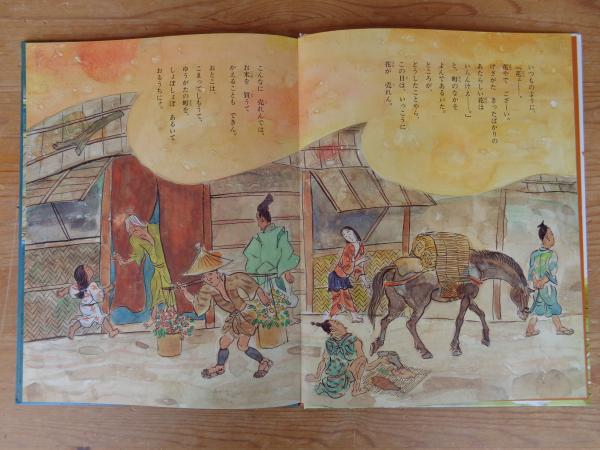 いつものように、
「花やー
花やで ござーい。
けさがた きったばかりの
あたらしい花は
いらんけえー……」
と、町のなかを
よんであるいた。
ところが、
どうしたことやら、
この日は、いっこうに
花が 売れん。
こんなに 売れんでは、
お米を 買うて
かえることも できん。
おとこは、
こまってしもうて、
ゆうがたの町を、
しょぼしょぼ あるいて
おるうちに、